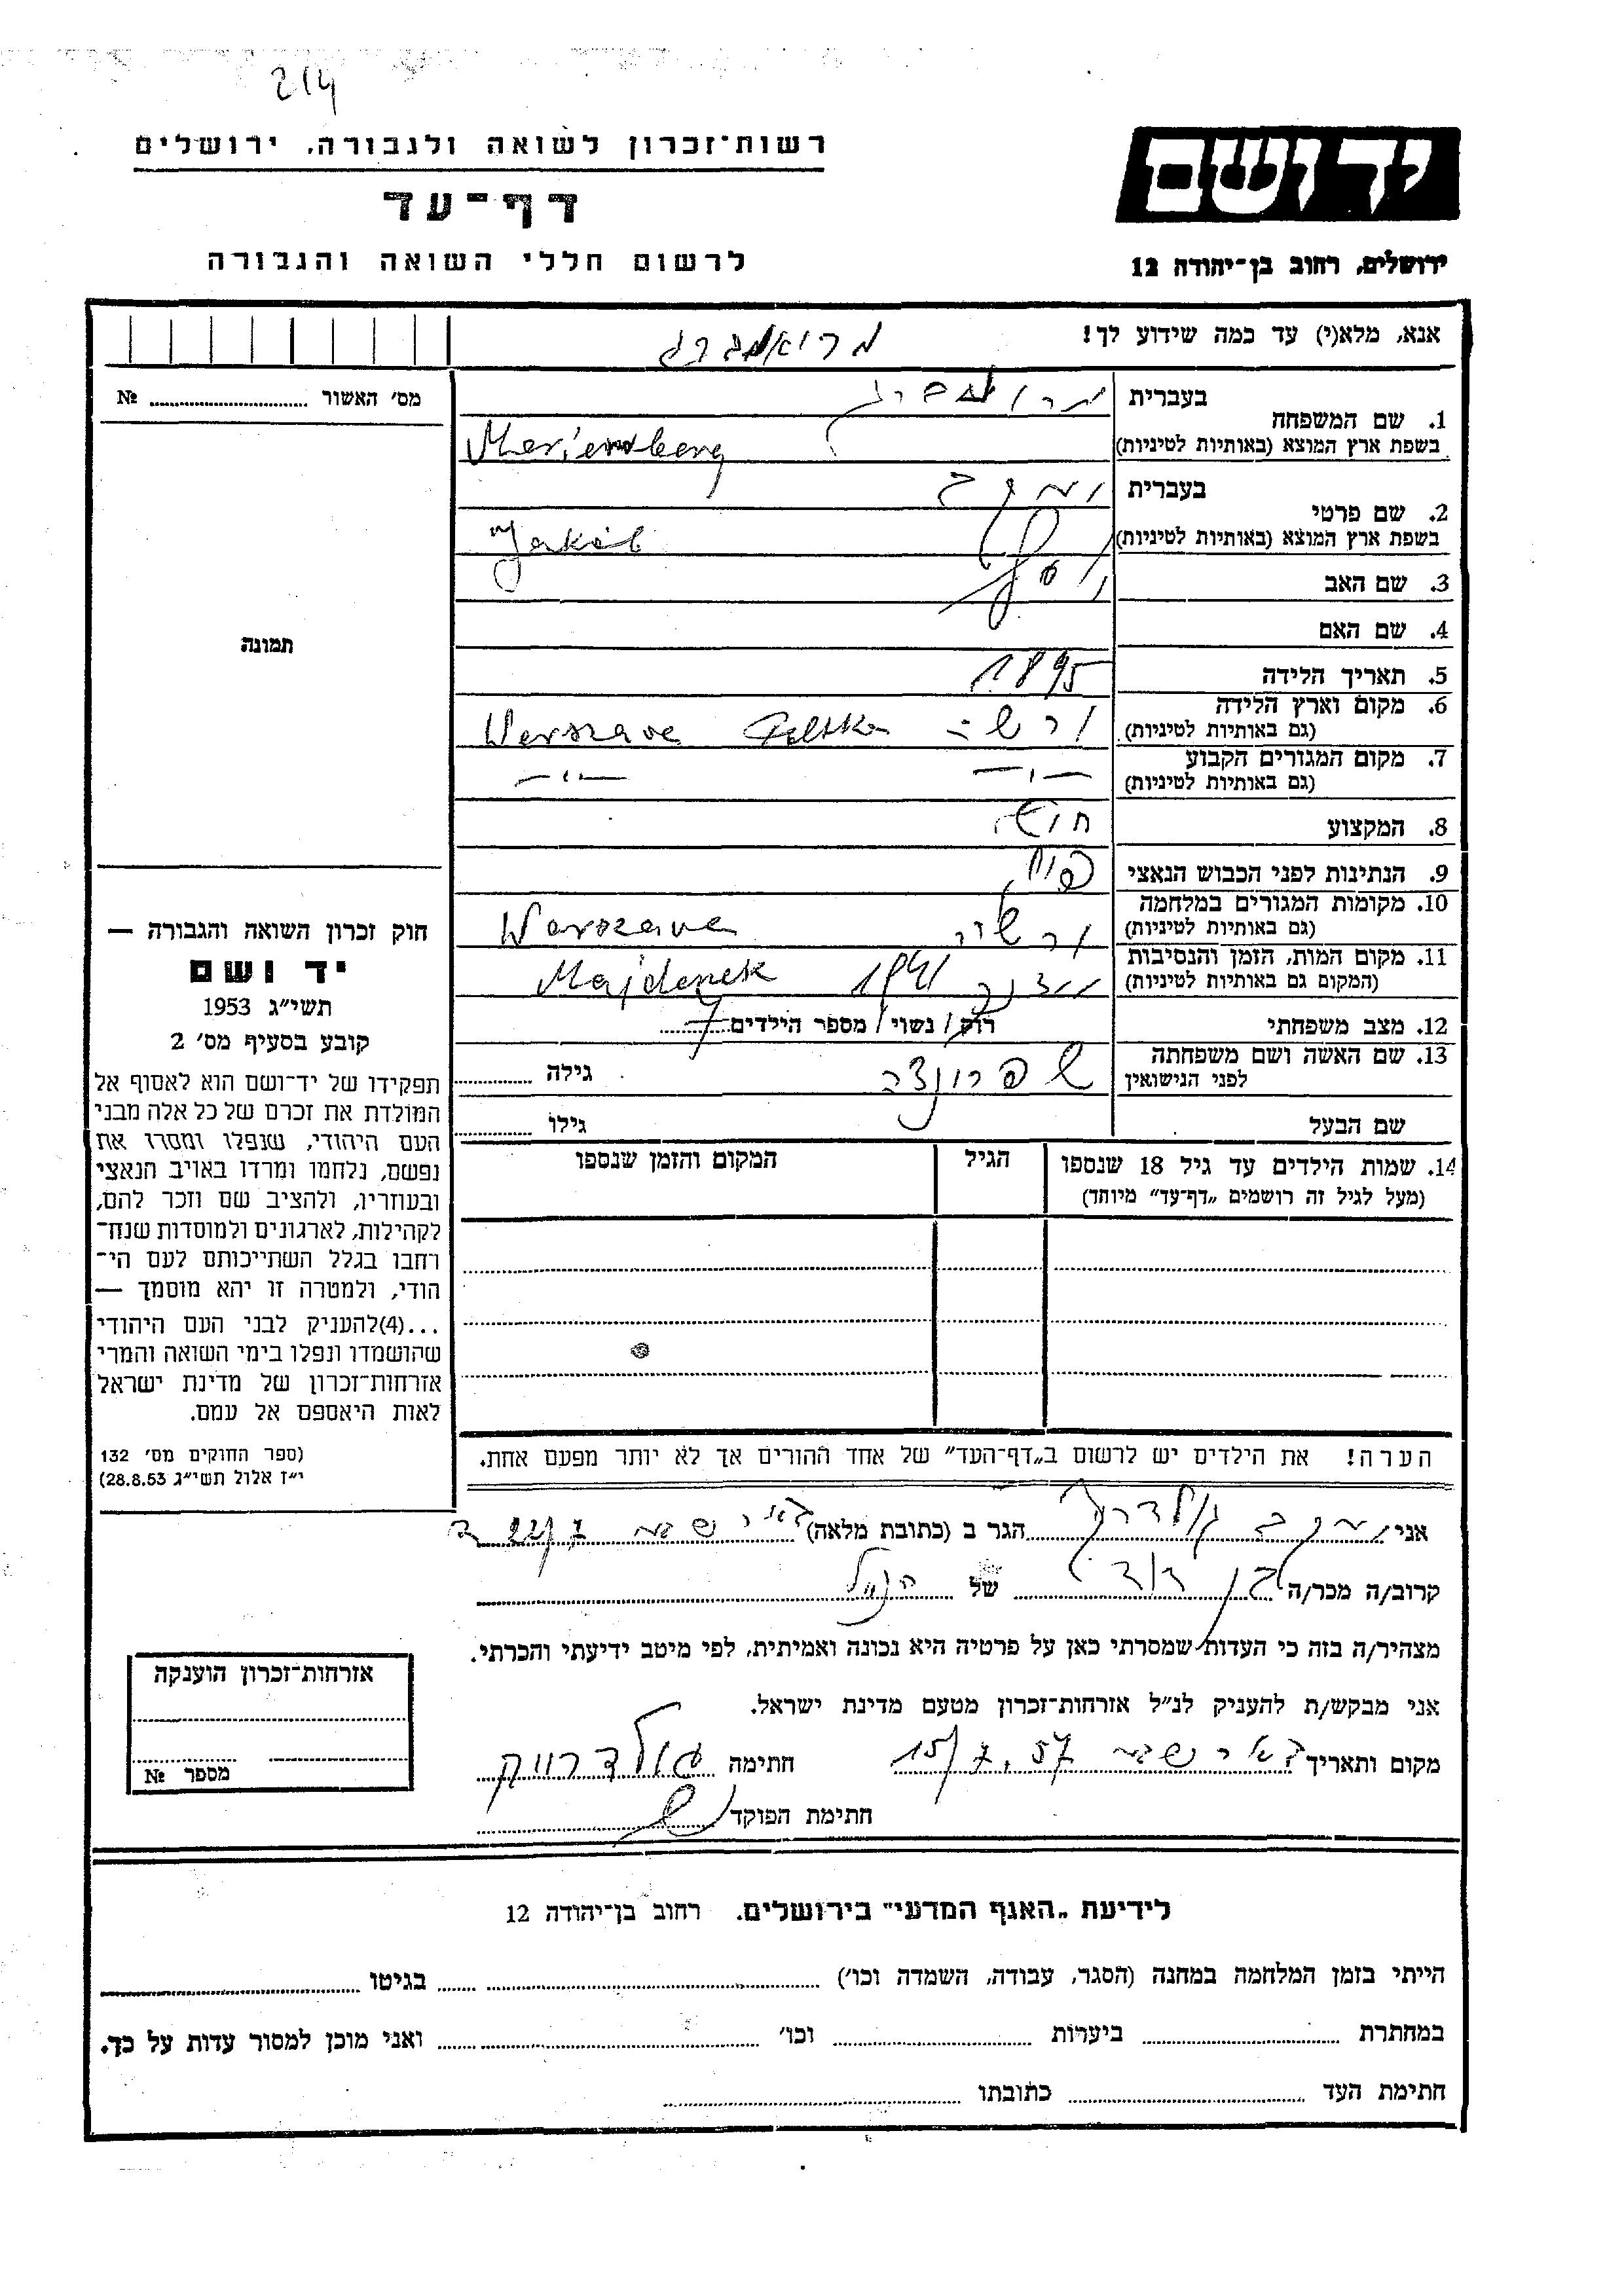 214
רשות־זכרון לשואה ולגבורה, ירושלים
דף־עד
לרשום חללי השואה והגבורה
ידושם
ירושלים, רחוב בן־יהודה 12
אנא, מלא(י) עד כמה שידוע לך!
מס׳ האשור № 
1. שם המשפחה
בעברית
בשפת ארץ המוצא (באותיות לטיניות)
2. שם פרטי
בעברית
יעקב
בשפת ארץ המוצא (באותיות לטיניות) Jakób
3. שם האב
4. שם האם
5. תאריך הלידה 1895
6. מקום וארץ הלידה
(גם באותיות לטיניות) Warszawa Polska
7. מקום המגורים הקבוע
(גם באותיות לטיניות) —״— —״—
8. המקצוע
9. הנתינות לפני הכבוש הנאצי
10. מקומות המגורים במלחמה
(גם באותיות לטיניות) Warszawa
11. מקום המות, הזמן והנסיבות
(המקום גם באותיות לטיניות) Majdanek
12. מצב משפחתי רוק / נשוי / מספר הילדים
13. שם האשה ושם משפחתה
לפני הנישואין
גילה
שם הבעל
גילו
14. שמות הילדים עד גיל 18 שנספו
(מעל לגיל זה רושמים „דף־עד״ מיוחד)
הגיל
המקום והזמן שנספו
תמונה
חוק זכרון השואה והגבורה —
יד ושם
תשי״ג 1953
קובע בסעיף מס׳ 2
תפקידו של יד־ושם הוא לאסוף אל
המולדת את זכרם של כל אלה מבני
העם היהודי, שנפלו ומסרו את
נפשם, נלחמו ומרדו באויב הנאצי
ובעוזריו, ולהציב שם וזכר להם,
לקהילות, לארגונים ולמוסדות שנח־
רחבו בגלל השתייכותם לעם הי־
הודי, ולמטרה זו יהא מוסמך —
...(4)להעניק לבני העם היהודי
שהושמדו ונפלו בימי השואה והמרי
אזרחות־זכרון של מדינת ישראל
לאות היאספם אל עמם.
(ספר החוקים מס׳ 132
י״ז אלול תשי״ג 28.8.53)
הערה! את הילדים יש לרשום ב„דף־העד״ של אחד ההורים אך לא יותר מפעם אחת.
אני יעקב הגר ב (כתובת מלאה) באר שבע
קרוב/ה מכר/ה בן דוד של הנ״ל
מצהיר/ה בזה כי העדות שמסרתי כאן על פרטיה היא נכונה ואמיתית, לפי מיטב ידיעתי והכרתי.
אני מבקש/ת להעניק לנ״ל אזרחות־זכרון מטעם מדינת ישראל.
מקום ותאריך באר שבע 15/7.57 חתימה
חתימת הפוקד
אזרחות־זכרון הוענקה
מספר №
לידיעת „האגף המדעי״ בירושלים. רחוב בן־יהודה 12
הייתי בזמן המלחמה במחנה (הסגר, עבודה, השמדה וכו׳) בגיטו
במחתרת ביערות וכו׳ ואני מוכן למסור עדות על כך.
חתימת העד כתובתו